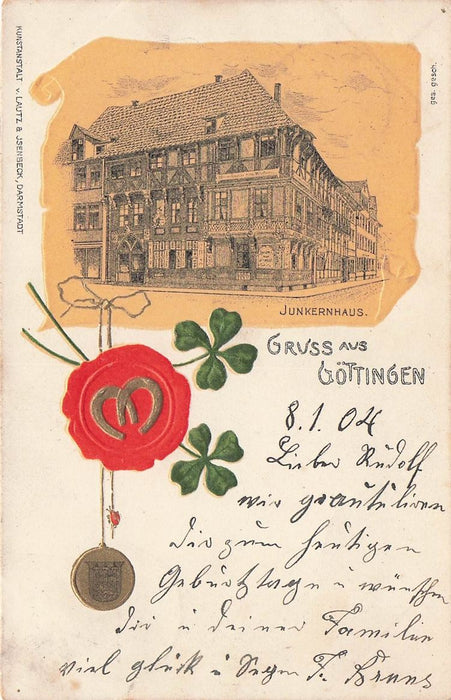 KUNSTANSTALT v. LAUTZ & JSENBECK, DARMSTADT
ges. gesch.
JUNKERNHAUS.
GRUSS AUS
GÖTTINGEN
8.1.04
Lieber Rudolf
wir gratuliren
dir zum heutigen
Geburtztage u wünschen
dir u deiner Familie
viel glük u Segen